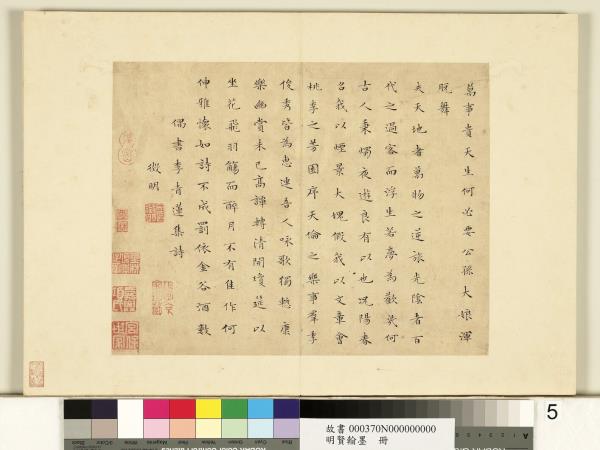 萬事貴天生何必要公孫大娘渾
脫舞
夫天地者萬物之逆旅光陰者百
代之過客而浮生若夢為歡幾何
古人秉燭夜遊良有以也況陽春
召我以煙景大塊假我以文章會
桃李之芳園序天倫之樂事羣季
俊秀皆為惠連吾人詠歌獨慙康
樂幽賞未已高譚轉清開瓊筵以
坐花飛羽觴而醉月不有佳作何
伸雅懷如詩不成罰依金谷酒數
偶書李青蓮集詩
徵明
5
故書 000370N000000000
明賢翰墨 冊